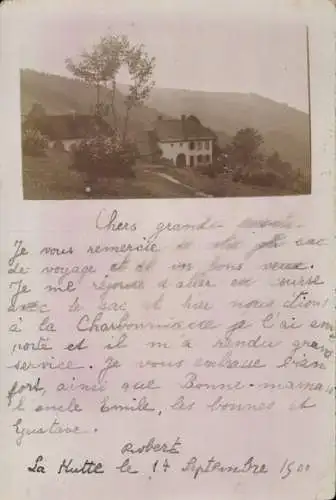 Chers grands
Je vous remercie de joli sac
de voyage et de vos bons vœux.
Je me réjouis d'aller en course
avec le sac et hier nous étions
à la Charbonnière je l'ai em
porté et il m'a rendu grand
service. Je vous embrasse bien
fort, ainsi que Bonne-maman
l'oncle Emile, les bonnes et
Gustave.
Robert
La Hutte le 14 Septembre